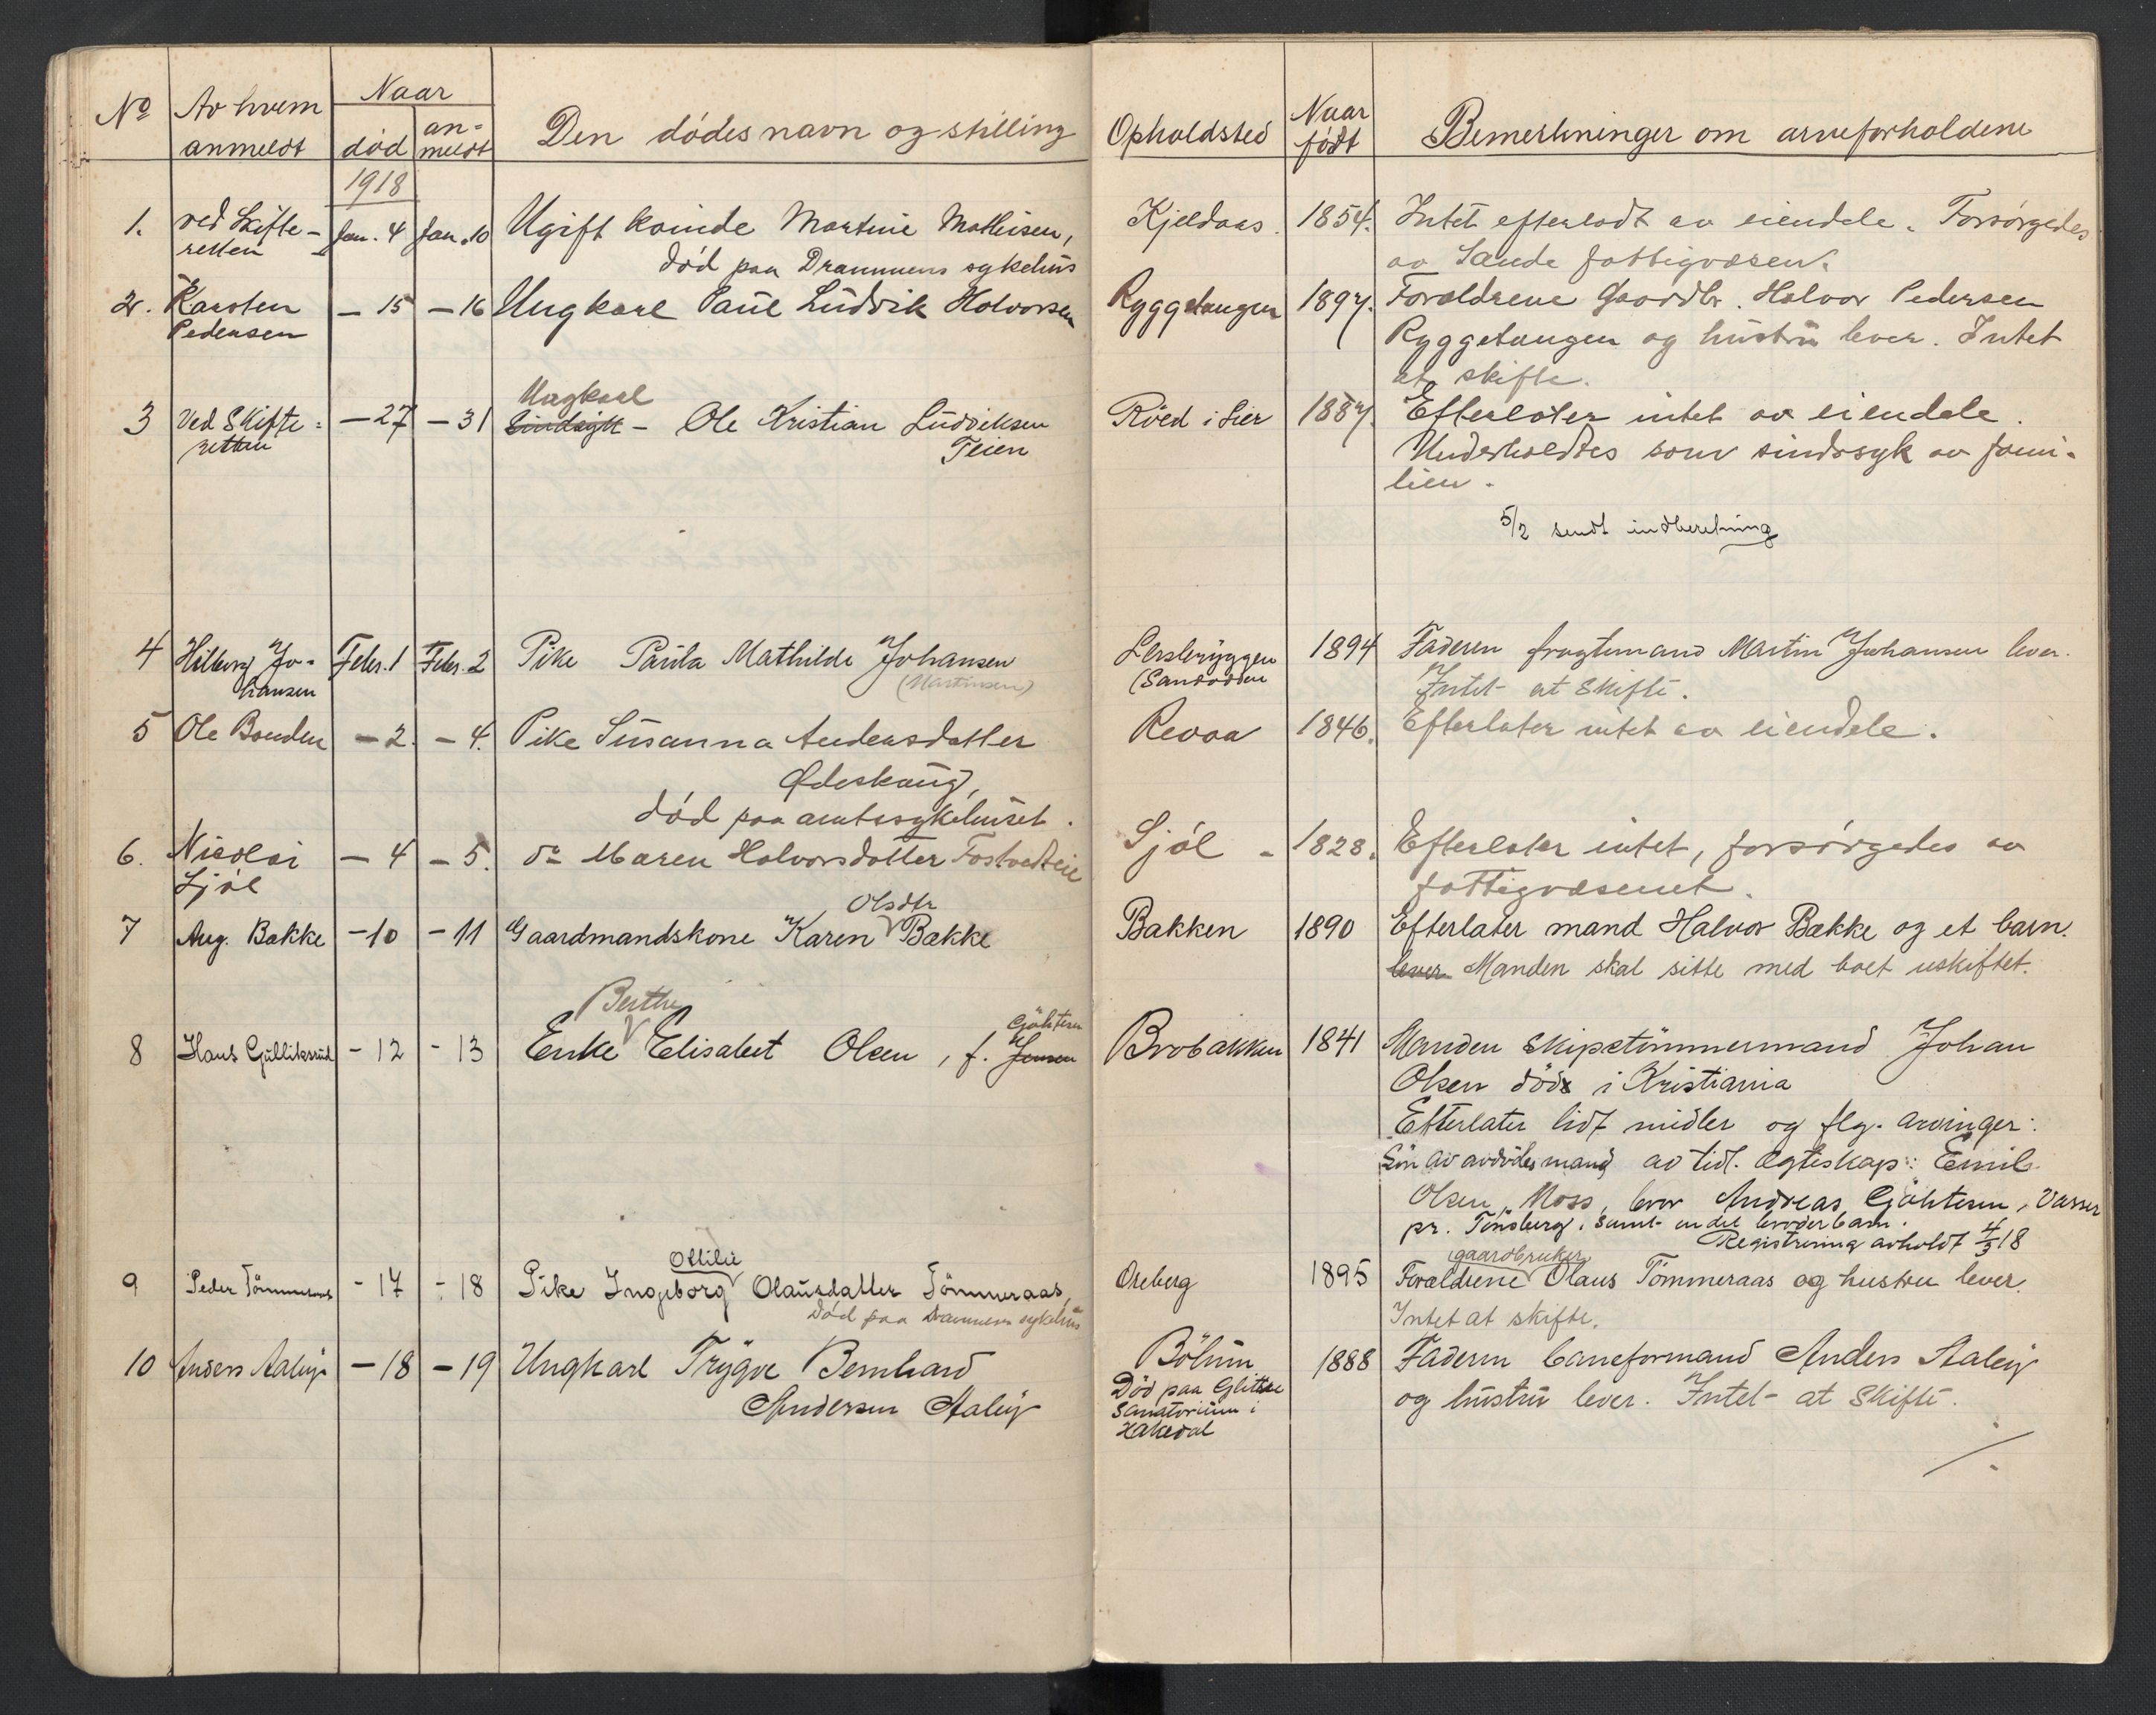 No Av hvem anmeldt Naar død an-meldt Den dødes navn og stilling Opholdsted Naar født Bemerkninger om arveforholdene
1918
1. ved Skifte- Jan. 4 Jan. 10 Ugift kvinde Martine Mathisen, Kjeldaas. 1854. Intet efterladt av eiendele. Forsørgedes
retten død paa Drammens sykehus av Sande fattigvæsen.
2. Karsten - 15 - 16 Ungkarl Paul Ludvik Halvorsen Ryggetangen 1897. Forældrene Gaardbr. Halvor Pedersen
Pedersen Ryggetangen og hustru lever. Intet
at skifte.
Ungkarl
3 Ved Skifte- - 27 - 31 Sindssyk - Ole Kristian Ludviksen Röed i Lier 1887. Efterlater intet av eiendele.
retten Teien Underholdtes som sindssyk av fami-
lien.
5/2 sendt indberetning
4 Hilborg Jo- Febr. 1 Febr. 2 Pike Paula Mathilde Johansen Lersbryggen 1894 Faderen fragtemand Martin Johansen lever.
hansen (Martinsen) (Sandodden Intet at skifte.
5 Ole Bonden - 2. - 4. Pike Susanna Andersdatter Revaa 1846. Efterlater intet av eiendele.
Ødeskaug,
død paa amtssykehuset.
6. Nicolai - 4 - 5. do Maren Halvorsdatter Fostvedteie Sjøl - 1828. Efterlater intet, forsørgedes av
Sjøl fattigvæsenet.
Olsdtr
7 Aug. Bakke - 10 - 11 Gaardmandskone Karen Bakke Bakken 1890 Efterlater mand Halvor Bakke og et barn.
lever Manden skal sitte med boet uskiftet.
Berthe Gjöhtesen
8 Hans Gulliksrud - 12 - 13 Enke Elisabet Olsen, f. Jensen Brobakken 1841 Manden skipstömmermand Johan
Olsen död i Kristiania
Efterlater lidt midler og flg. arvinger:
Sön av avdödes mand av tidl. ægteskap: Emil
Olsen, Moss, bror Andreas Gjöhtesen, Vasser
pr. Tönsberg, samt en del broderbarn.
Registrering avholdt 4/3 18
Ottilie gaardbruker
9 Peder Tömmeraas - 17 - 18 Pike Ingeborg Olausdatter Tömmeraas, Oreberg 1895 Forældrene Olaus Tömmeraas og hustru lever.
Död paa Drammens sykehus Intet at skifte.
10 Anders Aaby - 18 - 19 Ungkarl Trygve Bernhard Böhm 1888 Faderen baneformand Anders Aaby
Andersen Aaby Död paa Glittre og hustru lever. Intet at skifte.
Sanatorium i
Hakedal